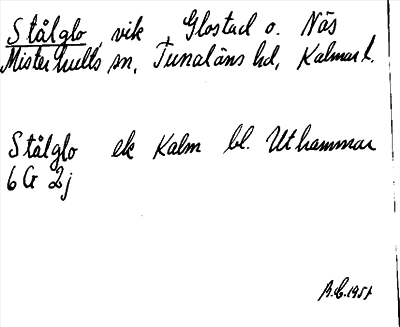 Stålglo, vik, Glostad o. Näs
Misterhults sn, Tunaläns hd, Kalmar l.
Stålglo ek Kalm bl. Uthammar
6 G 2j